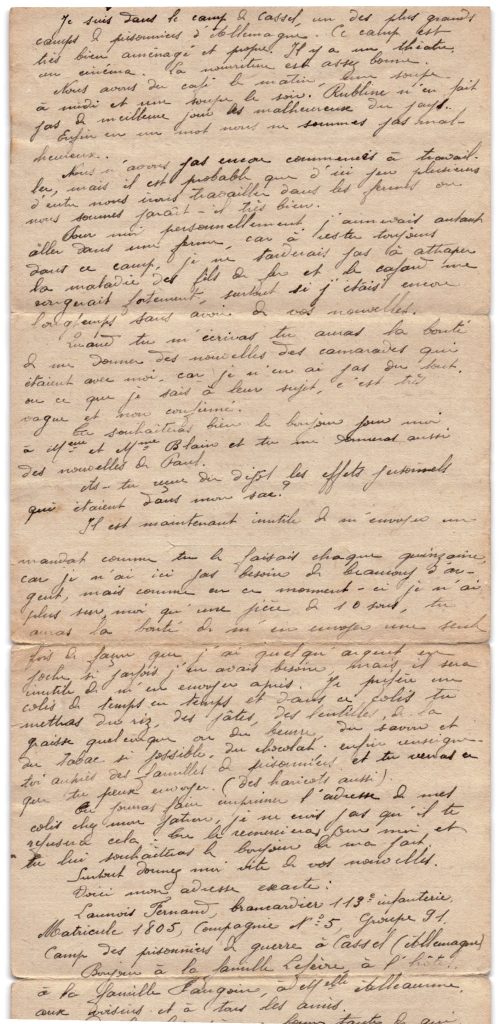 Je suis dans le camp de Cassel, un des plus grands
camps de prisonniers d'Allemagne. Ce camp est
très bien aménagé et propre. Il y a un théâtre,
un cinéma. La nourriture est assez bonne.
Nous avons du café le matin, une soupe
à midi et une soupe le soir. n'en fait
pas de meilleure pour les malheureuse du pays.
Enfin en un mot nous ne sommes pas mal-
heureux.
Nous n'avons pas encore commencés à travail-
ler, mais il est probable que d'ici peu plusieurs
d'entre nous irons travailler dans les fermes ou
nous sommes paraît-il très bien.
Pour moi personnellement j'aimerais autant
aller dans une ferme, car à rester toujours
dans ce camp, je ne tarderais pas à attraper
la maladie des fils de fer et le cafard me
rongerait fortement, surtout si j'étais encore
longtemps sans avoir de vos nouvelles.
Quand tu m'écriras tu auras la bonté
de me donner des nouvelles des camarades qui
étaient avec moi, car je n'en ai pas du tout,
ou ce que je sais à leur sujet, c'est très
vague et non confirmé.
Tu souhaiteras bien le bonjour pour moi
à et Mme Blain et tu me donneras aussi
des nouvelles de Paul.
As-tu reçu du dépôt les effets personnels
qui étaient dans mon sac?
Il est maintenant inutile de m'envoyer un
mandat comme tu le faisais chaque quinzaine,
car je n'ai ici pas besoin de beaucoup d'ar-
gent, mais comme en ce moment-ci je n'ai
plus sur moi qu'une pièce de 10 sous, tu
auras la bonté de m'en envoyer une seule
fois de façon que j'ai quelqu'argent en
poche, si parfois j'en avais besoin, mais il sera
inutile de m'en envoyer après. Je préfère un
colis de temps en temps et dans ce colis tu
mettras du riz, des pâtes, des lentilles, de la
graisse quelconque ou du beurre, du savon et
du tabac si possible, du chocolat. enfin renseigne-
toi auprès des familles de prisonniers et tu verras ce
que tu peux envoyer. (des haricots aussi).
Tu pourras faire imprimer l'adresse de mes
colis chez mon patron, je ne crois pas qu'il te
refusera cela. Tu le remercieras pour moi et
tu lui souhaiteras le bonjour de ma part.
Surtout donnez moi vite de vos nouvelles.
Voici mon adresse exacte:
Launois Fernand, brancardier 113e infanterie
Matricule 1805, Compagnie No 5 Groupe 91.
Camp des prisonniers de guerre à Cassel (Allemagne)
Bonjour à la famille Lefèvre, à l'hôtel,
à la famille à Melle
aux voisins et à tous les amis.